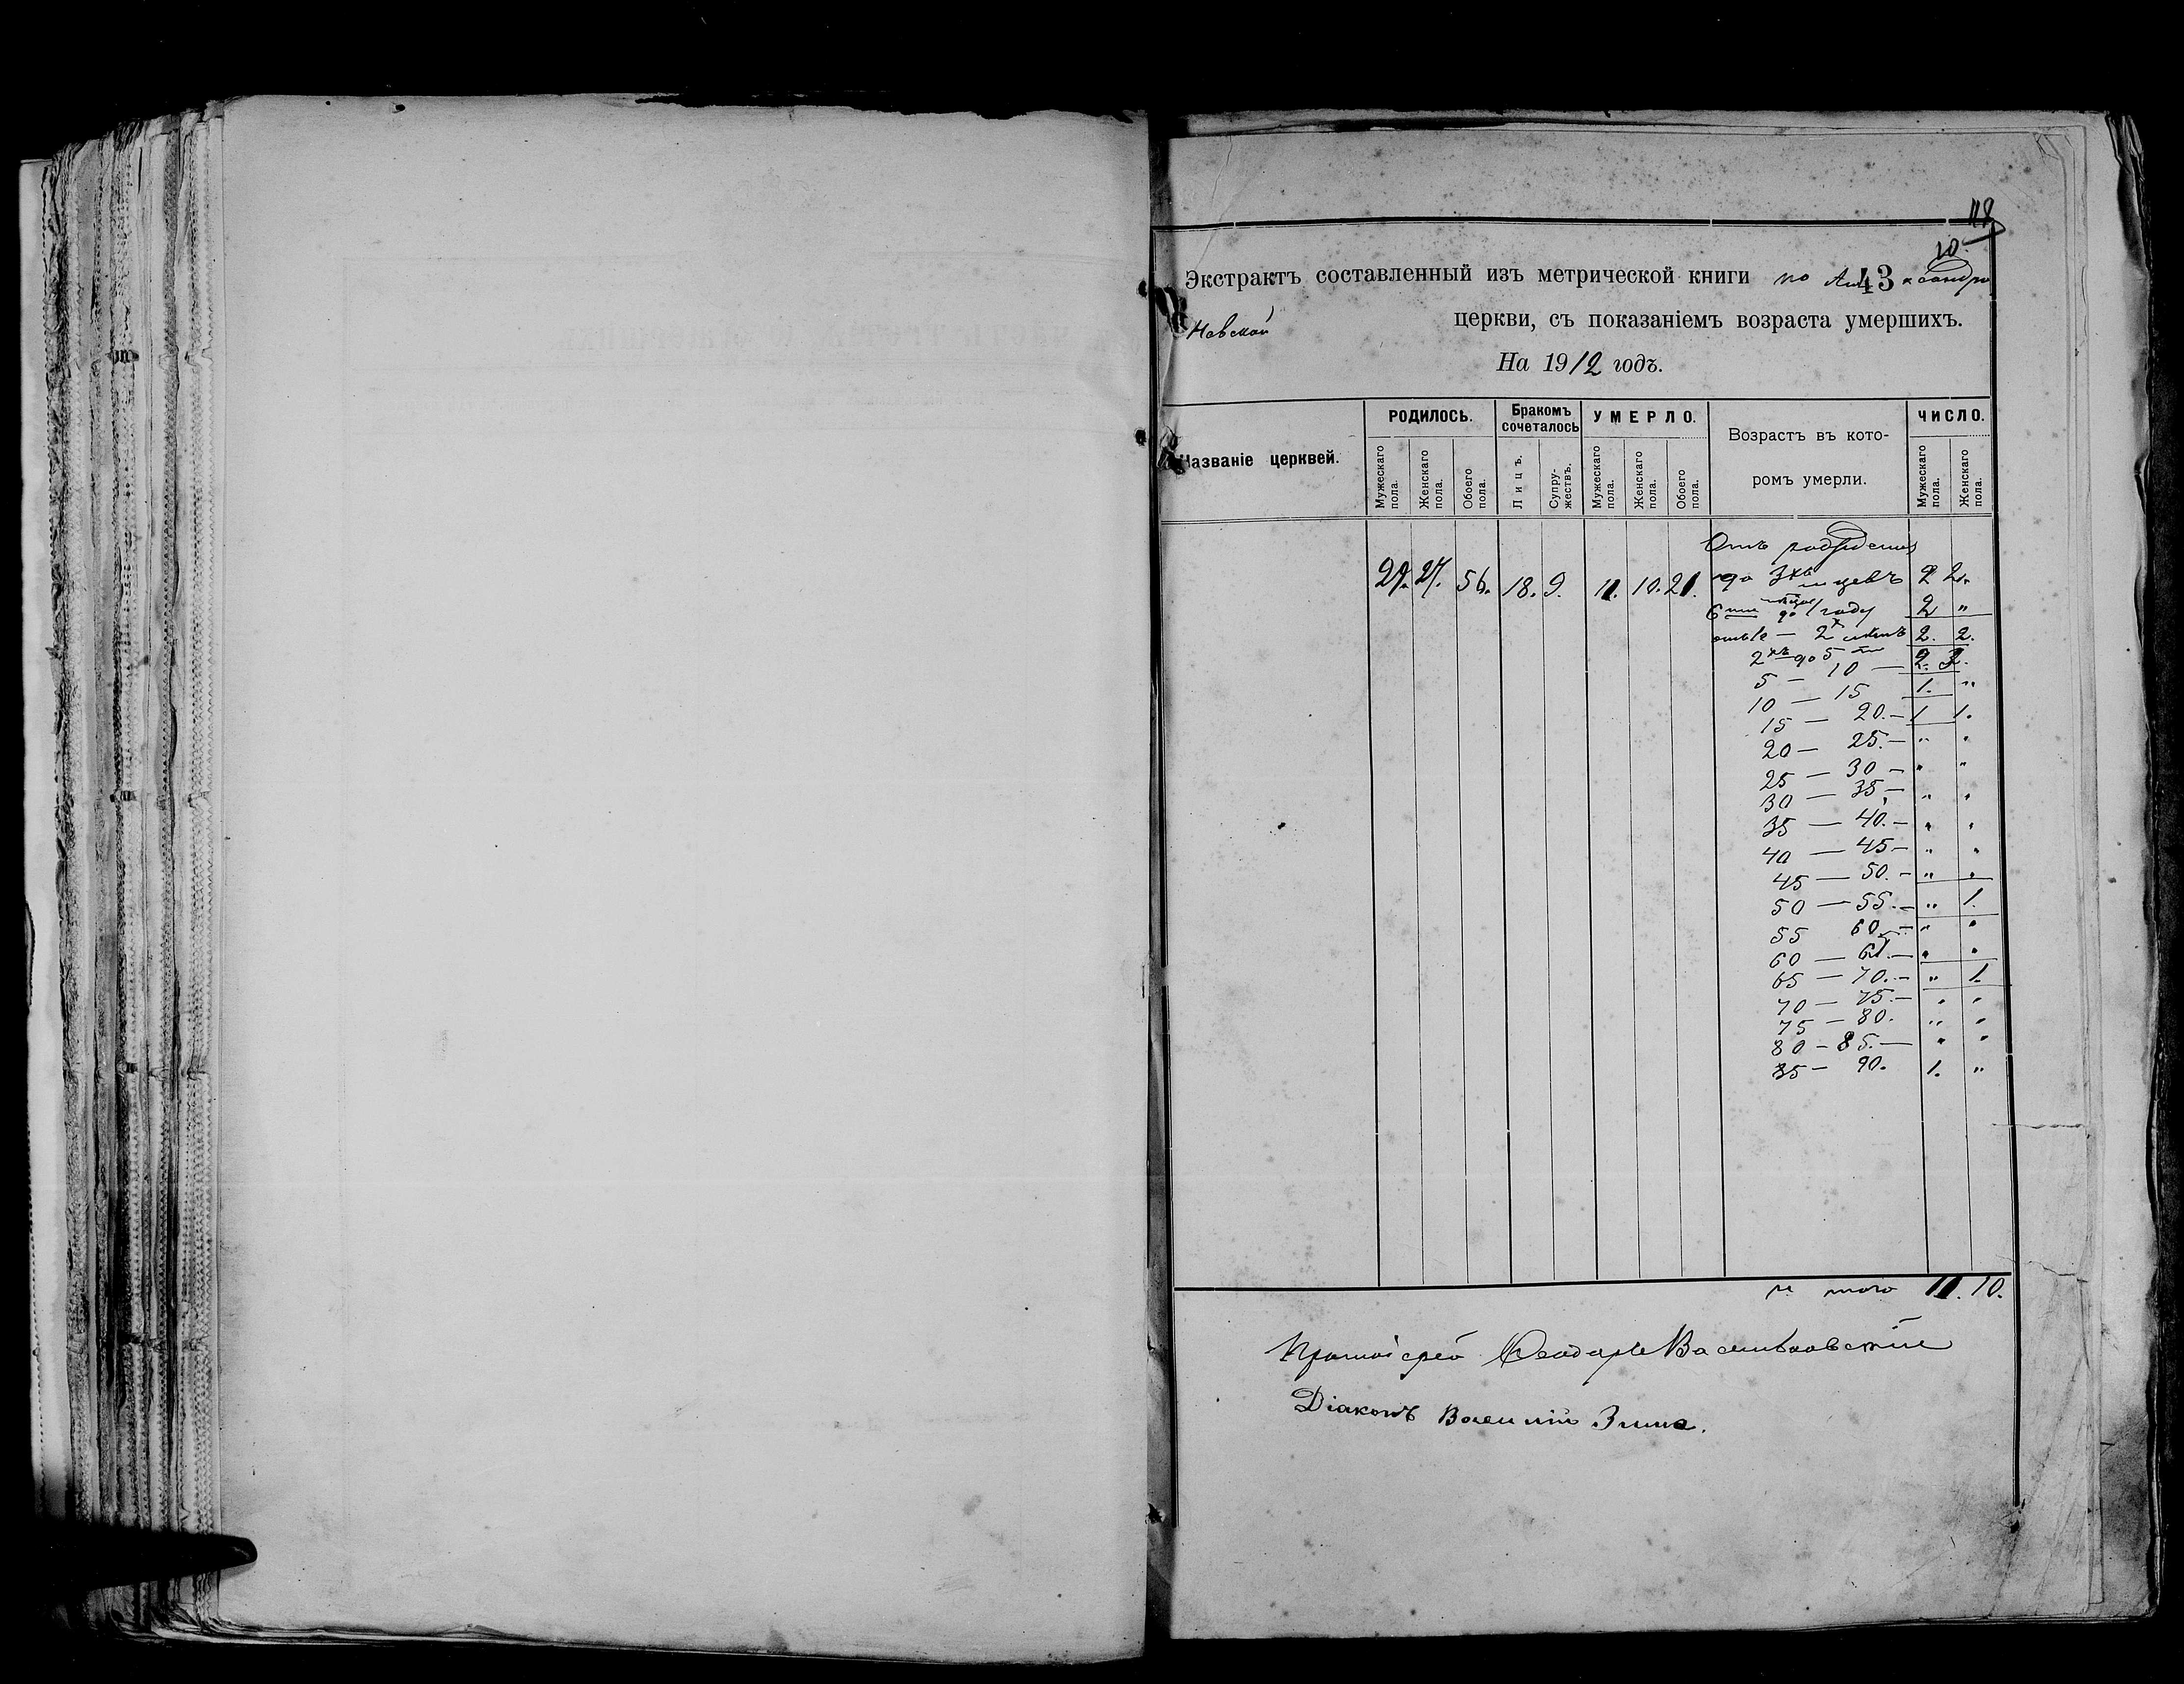 118
10.
Экстрактъ составленный изъ метрической книги по Александро
43
Невской церкви, съ показаніемъ возраста умершихъ.
На 1912 годъ.
Названіе церквей.
РОДИЛОСЬ.
Мужескаго пола.
Женскаго пола.
Обоего пола.
Бракомъ сочеталось
Лицъ.
Супружествъ.
УМЕРЛО.
Мужескаго пола.
Женскаго пола.
Обоего пола.
Возрастъ въ которомъ умерли.
ЧИСЛО.
Мужескаго пола.
Женскаго пола.
Отъ рожденія
29. 27. 56. 18. 9. 11. 10. 21. до 3хъ м-цевъ 2 2.
6 до 1 году 2 "
2х лѣтъ 2. 2.
2хъ до 5
5 — 10 — 2. 3.
10 — 15 1. "
15 — 20. — 1 1.
20 — 25. — " "
25 — 30 — " "
30 — 35 — " "
35 — 40. — " "
40 — 45 — " "
45 — 50. — " "
50 — 55. — " 1.
55 60. — " "
60 — 65. — " "
65 — 70. — " 1.
70 — 75. — " "
75 — 80. " "
80 — 85. — " "
85 — 90. 1. "
итого 11. 10.
Протоіерей Ѳеодоръ Васильковскій
Діаконъ Василій Зима.